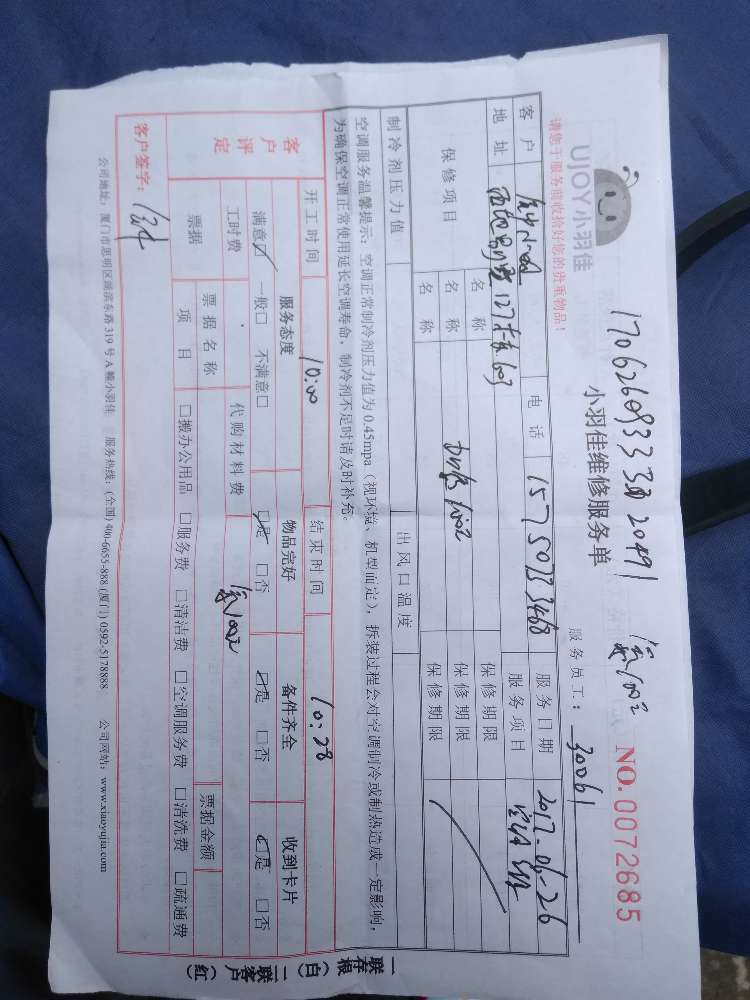 UJOY小羽佳
请您于服务前收拾好您的贵重物品!
小羽佳维修服务单
服务员工: 30061
NO.0072685
客户 电话 15750733468 服务日期 2017.06.26
地址 127 603 服务项目
保修项目 名称 保修期限
名称 加氟 保修期限
名称 保修期限
制冷剂压力值 出风口温度
空调服务温馨提示:空调正常制冷剂压力值为0.45mpa(视环境、机型而定),拆装过程会对空调制冷或制热造成一定影响,
为确保空调正常使用延长空调寿命,制冷剂不足时请及时补充。
开工时间 10:00 结束时间 10:28
客户评定 服务态度 物品完好 备件齐全 收到卡片
满意☑ 一般□ 不满意□ ☑是 □否 ☑是 □否 ☑是 □否
工时费 代购材料费
票据 票据名称 票据金额
项目 □搬办公用品 □服务费 □清洁费 □空调服务费 □清洗费 □疏通费
客户签字:
公司地址:厦门市思明区湖滨东路319号A幢小羽佳 服务热线:(全国)400-6655-888 (厦门)0592-5178888 公司网站:www.xiaoyujia.com
一联存根(白)二联客户(红)